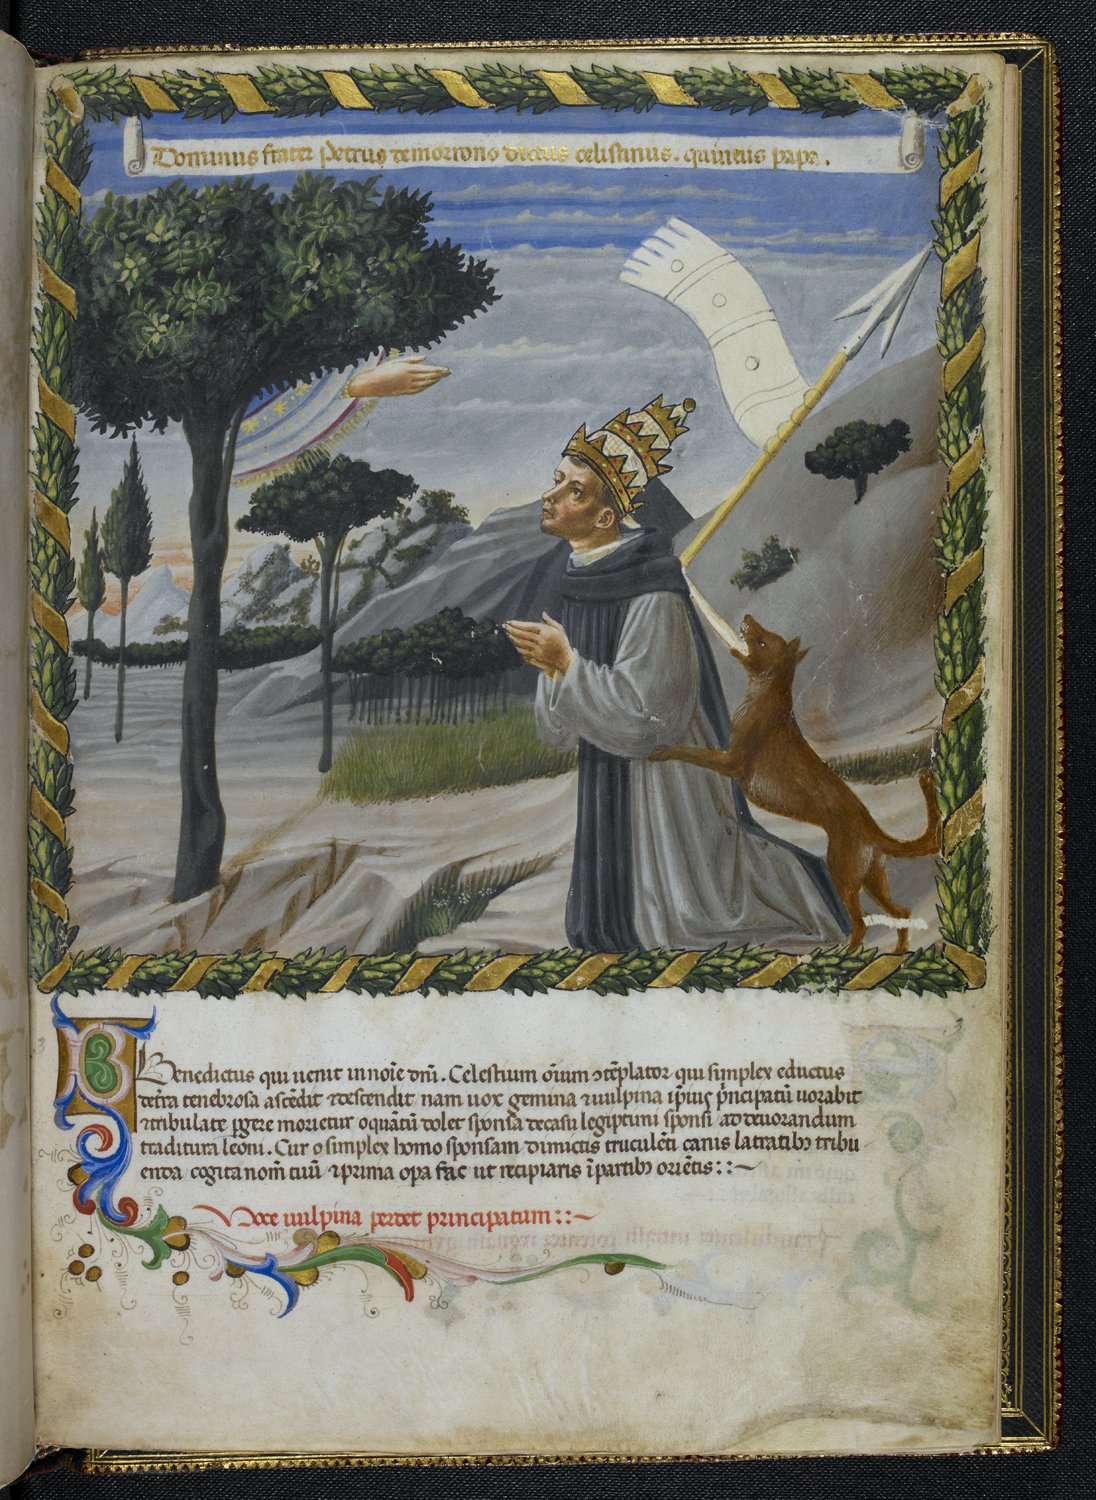 Dominus frater Petrus de morrono dictus celestinus. quintus papa.
Benedictus qui uenit in noīe dn̄i. Celestium oīum ↄtēplator qui simplex eductus
de t̄ra tenebrosa ascēdit ⁊ descendit nam uox gemina ⁊ uulpina ip̄ius p̄ncipatū uorabit
⁊ tribulate ꝑgere morietur o quātū dolet spōsa de casu legiptimi sponsi ad deuorandum
traditura leoni. Cur o simplex homo sponsam dimictis truculēti canis latratibꝫ tribu
enda cogita nom̄ tuū ⁊ prima opa fac ut recipiaris ī partibꝫ oriētis::~
Voce uulpina perdet principatum::~